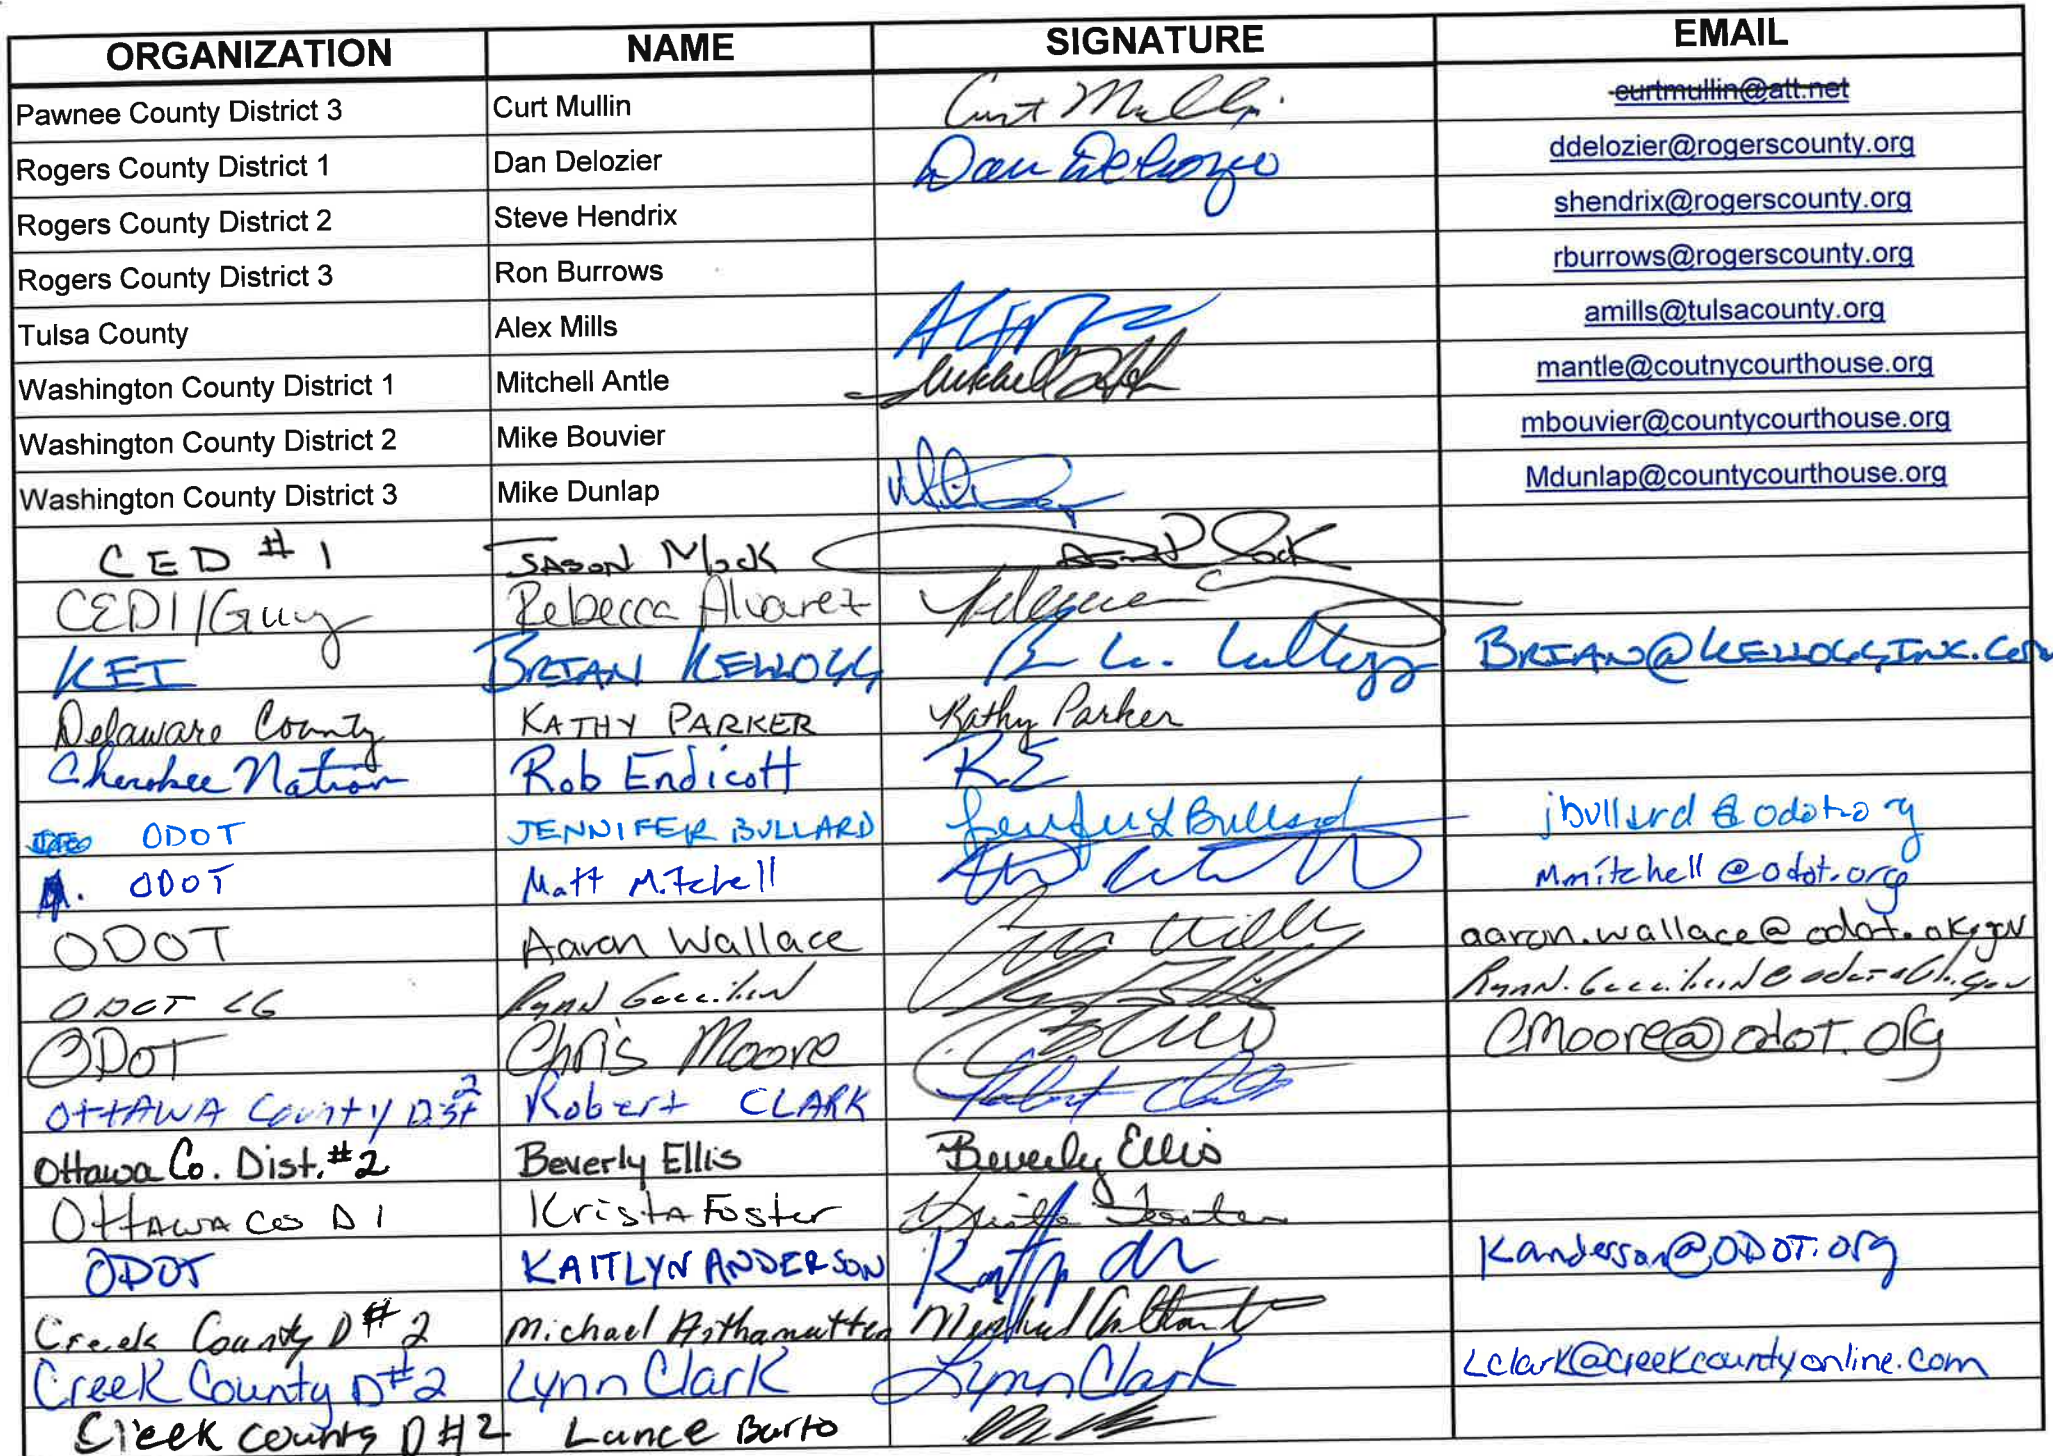 ORGANIZATION NAME SIGNATURE EMAIL
Pawnee County District 3 Curt Mullin Curt Mullin curtmullin@att.net
Rogers County District 1 Dan Delozier Dan Delozier ddelozier@rogerscounty.org
Rogers County District 2 Steve Hendrix shendrix@rogerscounty.org
Rogers County District 3 Ron Burrows rburrows@rogerscounty.org
Tulsa County Alex Mills amills@tulsacounty.org
Washington County District 1 Mitchell Antle Mitchell mantle@coutnycourthouse.org
Washington County District 2 Mike Bouvier mbouvier@countycourthouse.org
Washington County District 3 Mike Dunlap Mdunlap@countycourthouse.org
CED #1 JASON Mock
CED1/Guy Rebecca Alvarez
KEI BRIAN KELLOGG BRIAN@KELLOGGINK.COM
Delaware County KATHY PARKER Kathy Parker
Cherokee Nation Rob Endicott R.E
ODOT JENNIFER BULLARD Jennifer Bullard jbullard@odot.org
ODOT Matt Mitchell mmitchell@odot.org
ODOT Aaron Wallace aaron.wallace@odot.ok.gov
ODOT
ODOT Chris Moore CMoore@odot.org
OttAWA County Dist 2 Robert CLARK Robert Clark
Ottawa Co. Dist. #2 Beverly Ellis Beverly Ellis
OttAWA Co D1 KristA Foster Krista Foster
ODOT KAITLYN ANDERSON Kanderson@ODOT.org
Creek County D#2 Michael Michael
Creek County D#2 Lynn Clark Lynn Clark Lclark@creekcountyonline.com
Creek County D#2 Lance Burto